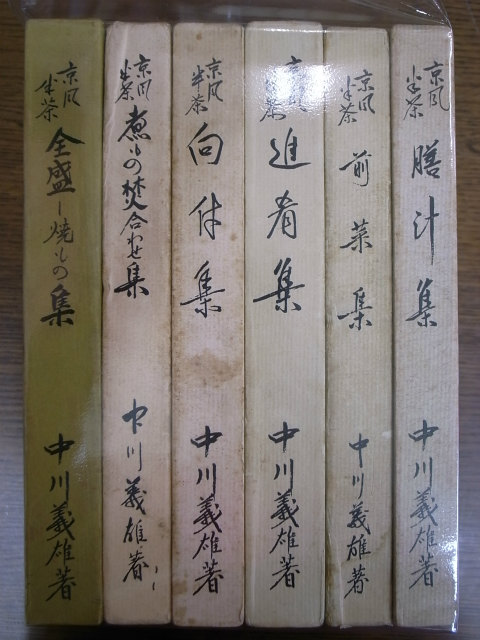 京風
半茶
全盛ー焼もの集
中川義雄著
京風
半茶
煮もの焚合わせ集
中川義雄著
京風
半茶
向付集
中川義雄著
京風
半茶
進肴集
中川義雄著
京風
半茶
前菜集
中川義雄著
京風
半茶
膳汁集
中川義雄著